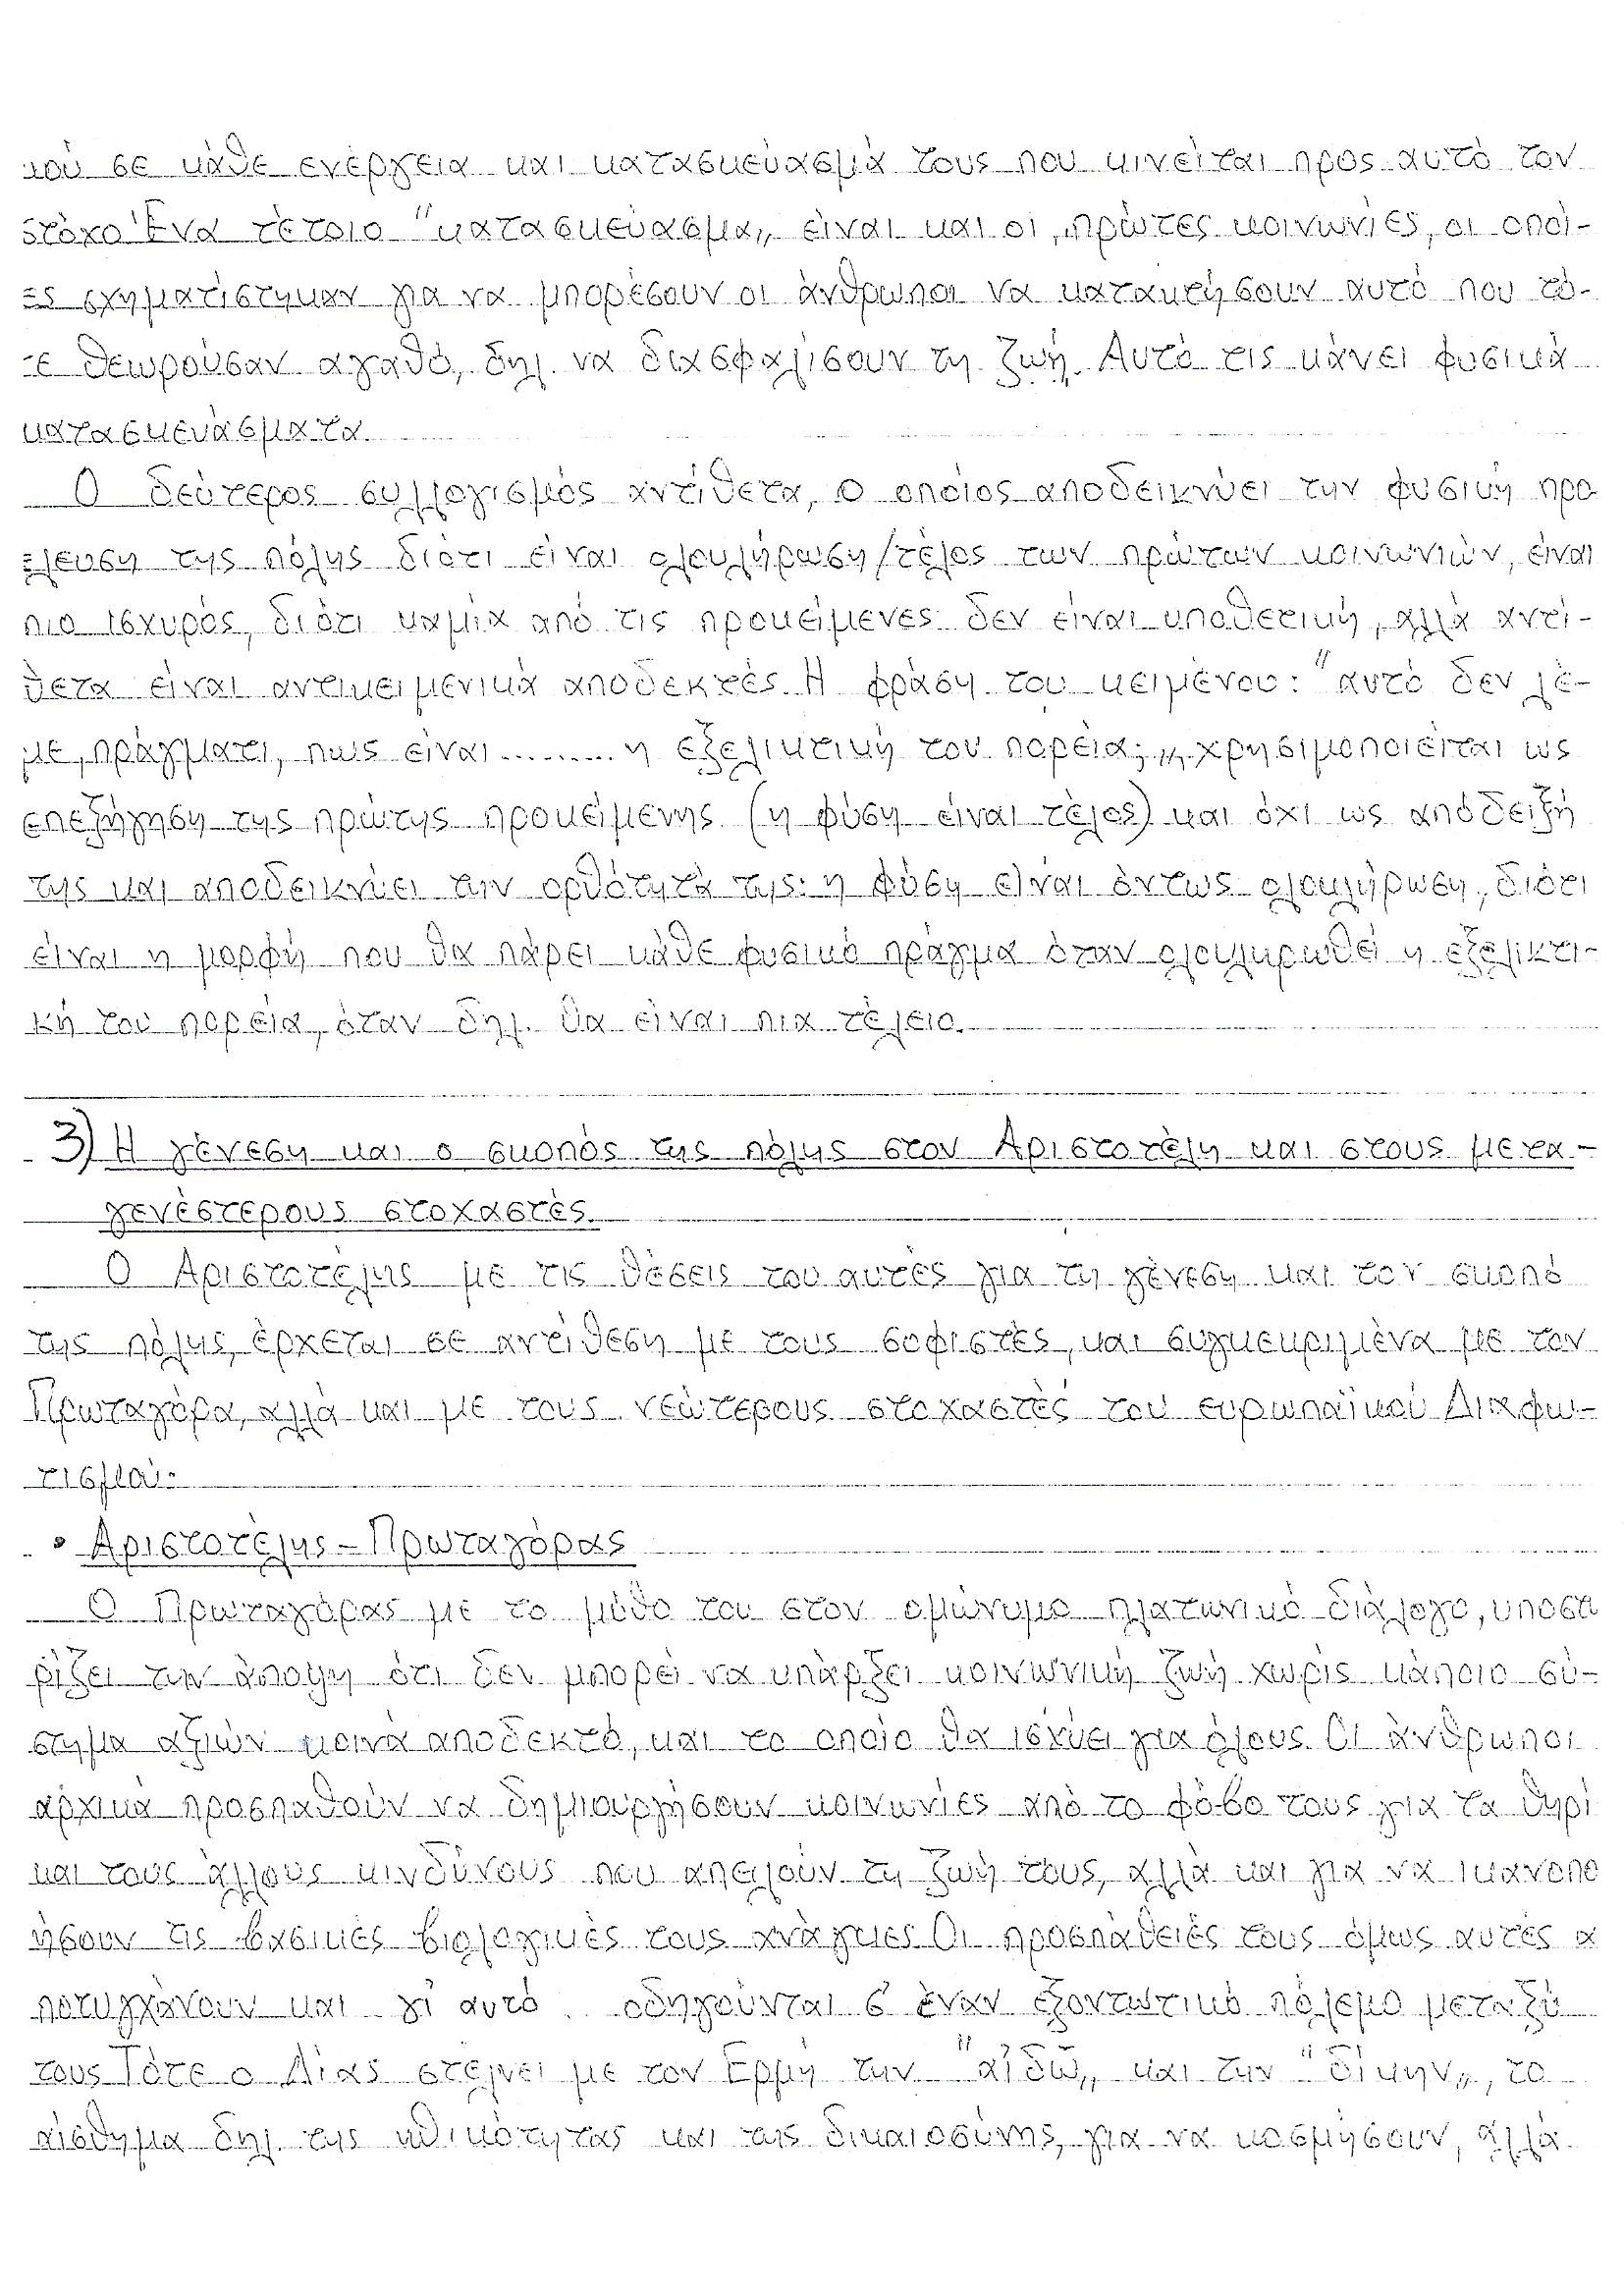 κού σε κάθε ενέργεια και κατασκεύασμά τους που κινείται προς αυτό τον
στόχο Ένα τέτοιο "κατασκεύασμα,, είναι και οι πρώτες κοινωνίες, οι οποί-
ες σχηματίστηκαν για να μπορέσουν οι άνθρωποι να κατακτήσουν αυτό που τό-
τε θεωρούσαν αγαθό, δηλ. να διασφαλίσουν τη ζωή. Αυτό τις κάνει φυσικά
κατασκευάσματα.
Ο δεύτερος συλλογισμός αντίθετα, ο οποίος αποδεικνύει την φυσική προ
έλευση της πόλης διότι είναι ολοκλήρωση/τέλος των πρώτων κοινωνιών, είναι
πιο ισχυρός, διότι καμία από τις προκείμενες δεν είναι υποθετική, αλλά αντί-
θετα είναι αντικειμενικά αποδεκτές. Η φράση του κειμένου: "αυτό δεν λέ-
με, πράγματι, πως είναι ......... η εξελικτική του πορεία;,, χρησιμοποιείται ως
επεξήγηση της πρώτης προκείμενης (η φύση είναι τέλος) και όχι ως απόδειξή
της και αποδεικνύει την ορθότητά της: η φύση είναι όντως ολοκλήρωση, διότι
είναι η μορφή που θα πάρει κάθε φυσικό πράγμα όταν ολοκληρωθεί η εξελικτι-
κή του πορεία, όταν δηλ. θα είναι πια τέλειο.
3) Η γένεση και ο σκοπός της πόλης στον Αριστοτέλη και στους μετα-
γενέστερους στοχαστές.
Ο Αριστοτέλης με τις θέσεις του αυτές για τη γένεση και τον σκοπό
της πόλης, έρχεται σε αντίθεση με τους σοφιστές, και συγκεκριμένα με τον
Πρωταγόρα, αλλά και με τους νεώτερους στοχαστές του ευρωπαϊκού Διαφω-
τισμού:
• Αριστοτέλης - Πρωταγόρας
Ο Πρωταγόρας με το μύθο του στον ομώνυμο πλατωνικό διάλογο, υποστη
ρίζει την άποψη ότι δεν μπορεί να υπάρξει κοινωνική ζωή χωρίς κάποιο σύ-
στημα αξιών κοινά αποδεκτό, και το οποίο θα ισχύει για όλους. Οι άνθρωποι
αρχικά προσπαθούν να δημιουργήσουν κοινωνίες από το φόβο τους για τα θηρί
και τους άλλους κινδύνους που απειλούν τη ζωή τους, αλλά και για να ικανοπο
ήσουν τις βασικές βιολογικές τους ανάγκες. Οι προσπάθειές τους όμως αυτές α
ποτυγχάνουν και γι' αυτό οδηγούνται σ' έναν εξοντωτικό πόλεμο μεταξύ
τους Τότε ο Δίας στέλνει με τον Ερμή την "αἰδῶ,, και την "δίκην,,, το
αίσθημα δηλ. της ηθικότητας και της δικαιοσύνης, για να κοσμήσουν, αλλά